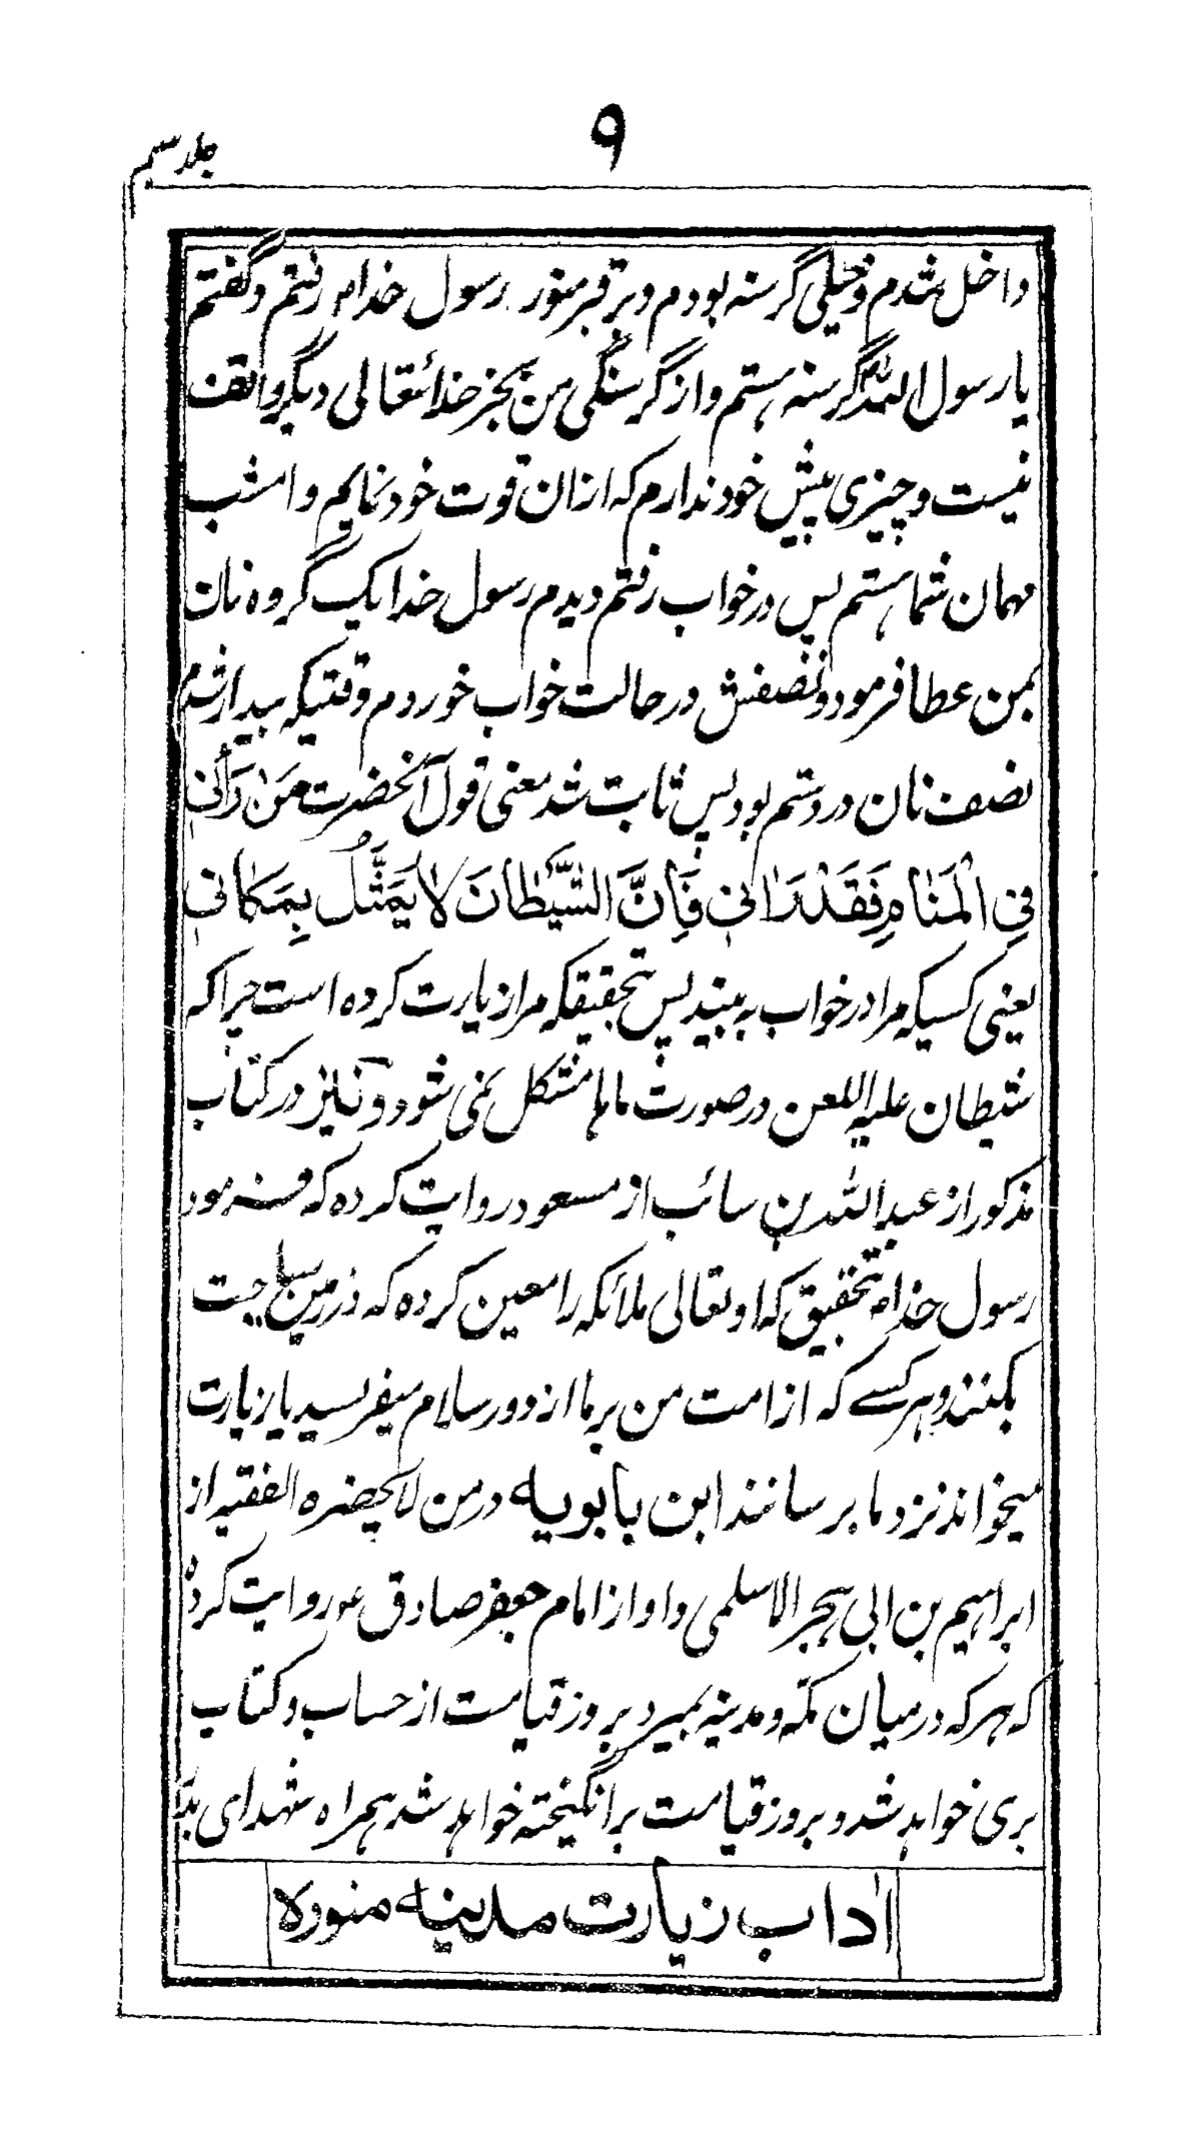 ۹
جلد سیم
داخل شدم وخیلی گرسنه بودم و برقبر منور رسول خدا ص رفتم وگفتم
یا رسول الله گرسنه هستم واز گرسنگی من بجز خدائتعالی دیگر واقف
نیست وچیزی پیش خود ندارم که ازان قوت خود نمایم وامشب
مهمان شما هستم پس درخواب رفتم دیدم رسول خدا یک گروه نان
بمن عطا فرمود ونصفش در حالت خواب خوردم وقتیکه بیدار شدم
نصف نان دردستم بود پس ثابت شد معنی قول آنحضرت مَنْ رَأنی
فِی الْمَنٰامِ فَقَدْ رَاٰنی فَاِنَّ الشَّیْطٰانَ لاٰ یَمَثَّلُ بِمَکانی
یعنی کسیکه مرا درخواب به بیند پس تحقیقکه مرا زیارت کرده است چرا که
شیطان علیه اللعن درصورت ماها مشکل نمی شود ونیز درکتاب
مذکور از عبدالله بن سائب از مسعود روایت کرده که فرمود
رسول خدا ص تحقیق که او تعالی ملائکه را معین کرده که در زمین سیاحت
بکنند وهر کسے که ازامت من برما از دور سلام میفرسید یا زیارت
میخواند نزد ما برسانند ابن بابویه درمن لایحضره الفقیه از
ابراهیم بن ابی هجر الاسلمی واو از امام جعفر صادق ع روایت کرده
که هرکه درمیان مکه ومدینه بمیرد بروز قیامت از حساب وکتاب
بری خواهد شد وبروز قیامت برانگیخته خواهد شد همراه شهدای بدر
اٰداب زیارت مدینه منوره